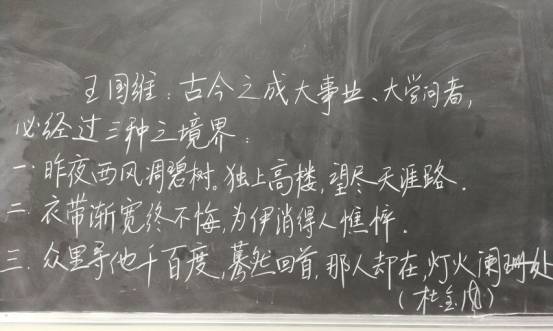 王国维:古今之成大事业、大学问者,
必经过三种之境界:
一.昨夜西风凋碧树。独上高楼,望尽天涯路.
二.衣带渐宽终不悔,为伊消得人憔悴.
三.众里寻他千百度,蓦然回首,那人却在,灯火阑珊处